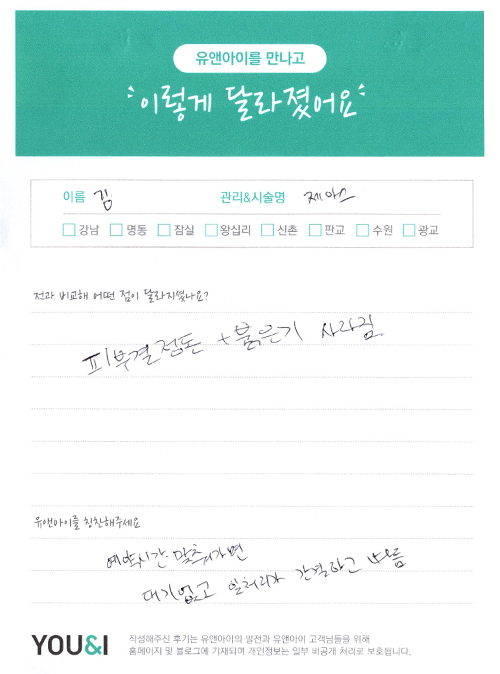 유앤아이를 만나고
이렇게 달라졌어요
이름 김 관리&시술명 제아스
강남 명동 잠실 왕십리 신촌 판교 수원 광교
전과 비교해 어떤 점이 달라지셨나요?
피부결정돈 + 붉은기 사라짐
유앤아이를 칭찬해주세요
예약시간 맞춰가면
대기없고 일처리가 간결하고 빠름
YOU&I
작성해주신 후기는 유앤아이의 발전과 유앤아이 고객님들을 위해
홈페이지 및 블로그에 기재되며 개인정보는 일부 비공개 처리로 보호됩니다.